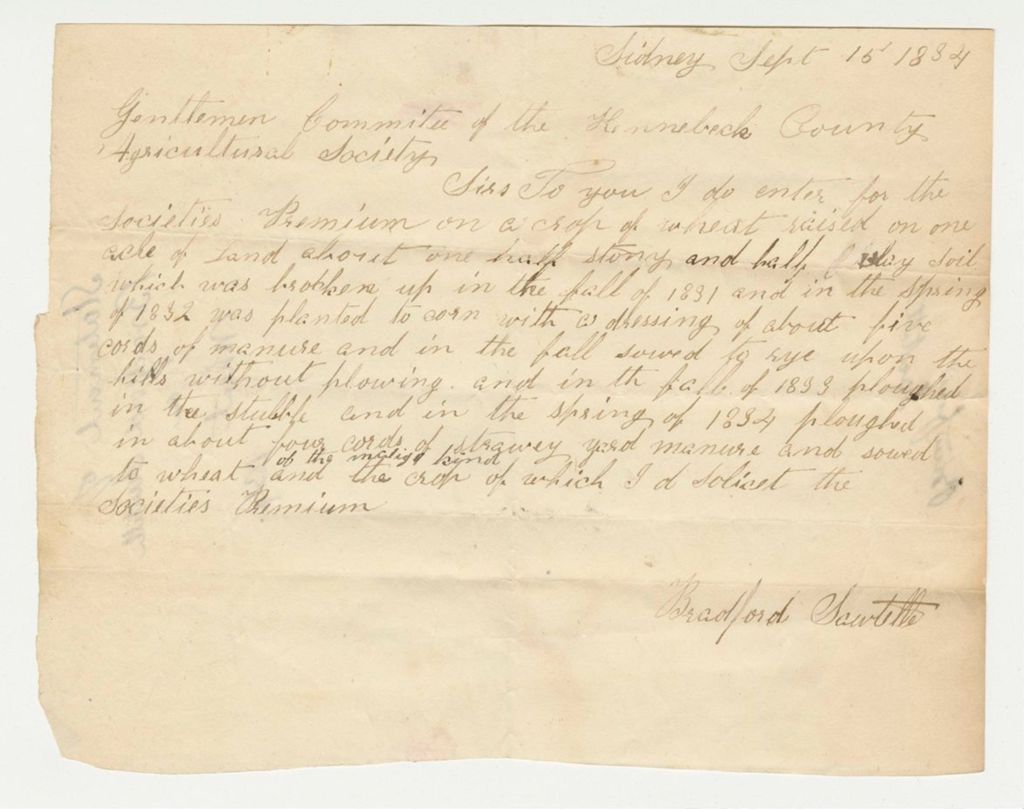 Sidney Sept 15 1834
Gentlemen Committee of the Kennebeck County
Agricultural Society
Sirs To you I do enter for the
Societies Premium on a crop of wheat raised on one
acle of Land about one half stony and half Clay soil
which was brokken up in the fall of 1831 and in the spring
of 1832 was planted to corn with a dressing of about five
cords of manure and in the fall sowed to rye upon the
hills without plowing. and in th fall of 1833 ploughed
in the stubble and in the spring of 1834 ploughed
in about four cords of strawey yard manure and sowed
of the kind
to wheat and the crop of which I d solicet the
Societies Premium
Bradford Sawtelle